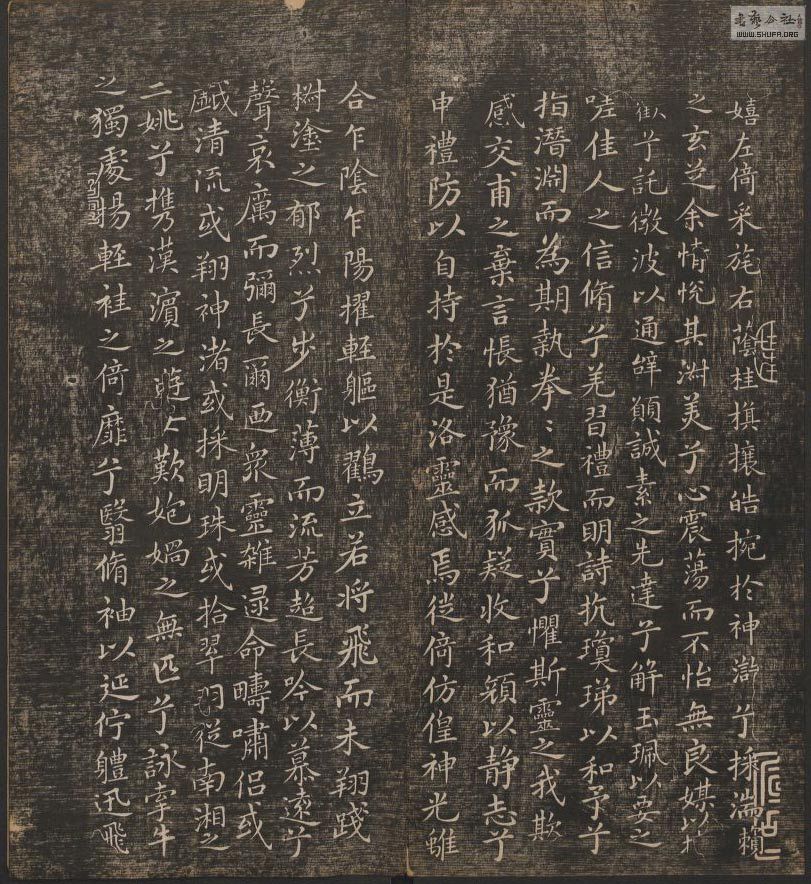 嬉左倚采旄右蔭桂旗攘皓捥於神滸兮採湍瀨
之玄芝余情悅其淑美兮心震蕩而不怡無良媒以接
歡兮託微波以通辭願誠素之先達兮解玉珮以要之
嗟佳人之信脩兮羌習禮而明詩抗瓊珶以和予兮
指潛淵而為期執拳〻之款實兮懼斯靈之我欺
感交甫之棄言悵猶豫而狐疑收和顏以靜志兮
申禮防以自持於是洛靈感焉徙倚仿偟神光離
合乍陰乍陽擢輕軀以鸖立若將飛而未翔踐
椒塗之郁烈兮步衡薄而流芳超長吟以慕遠兮
聲哀厲而彌長爾迺衆靈雜遝命疇嘯侶或
戲清流或翔神渚或採明珠或拾翠羽從南湘之
二姚兮攜漢濱之遊女歎匏媧之無匹兮詠牽牛
之獨處揚輕袿之倚靡兮翳脩袖以延佇軆迅飛
WWW.SHUFA.ORG